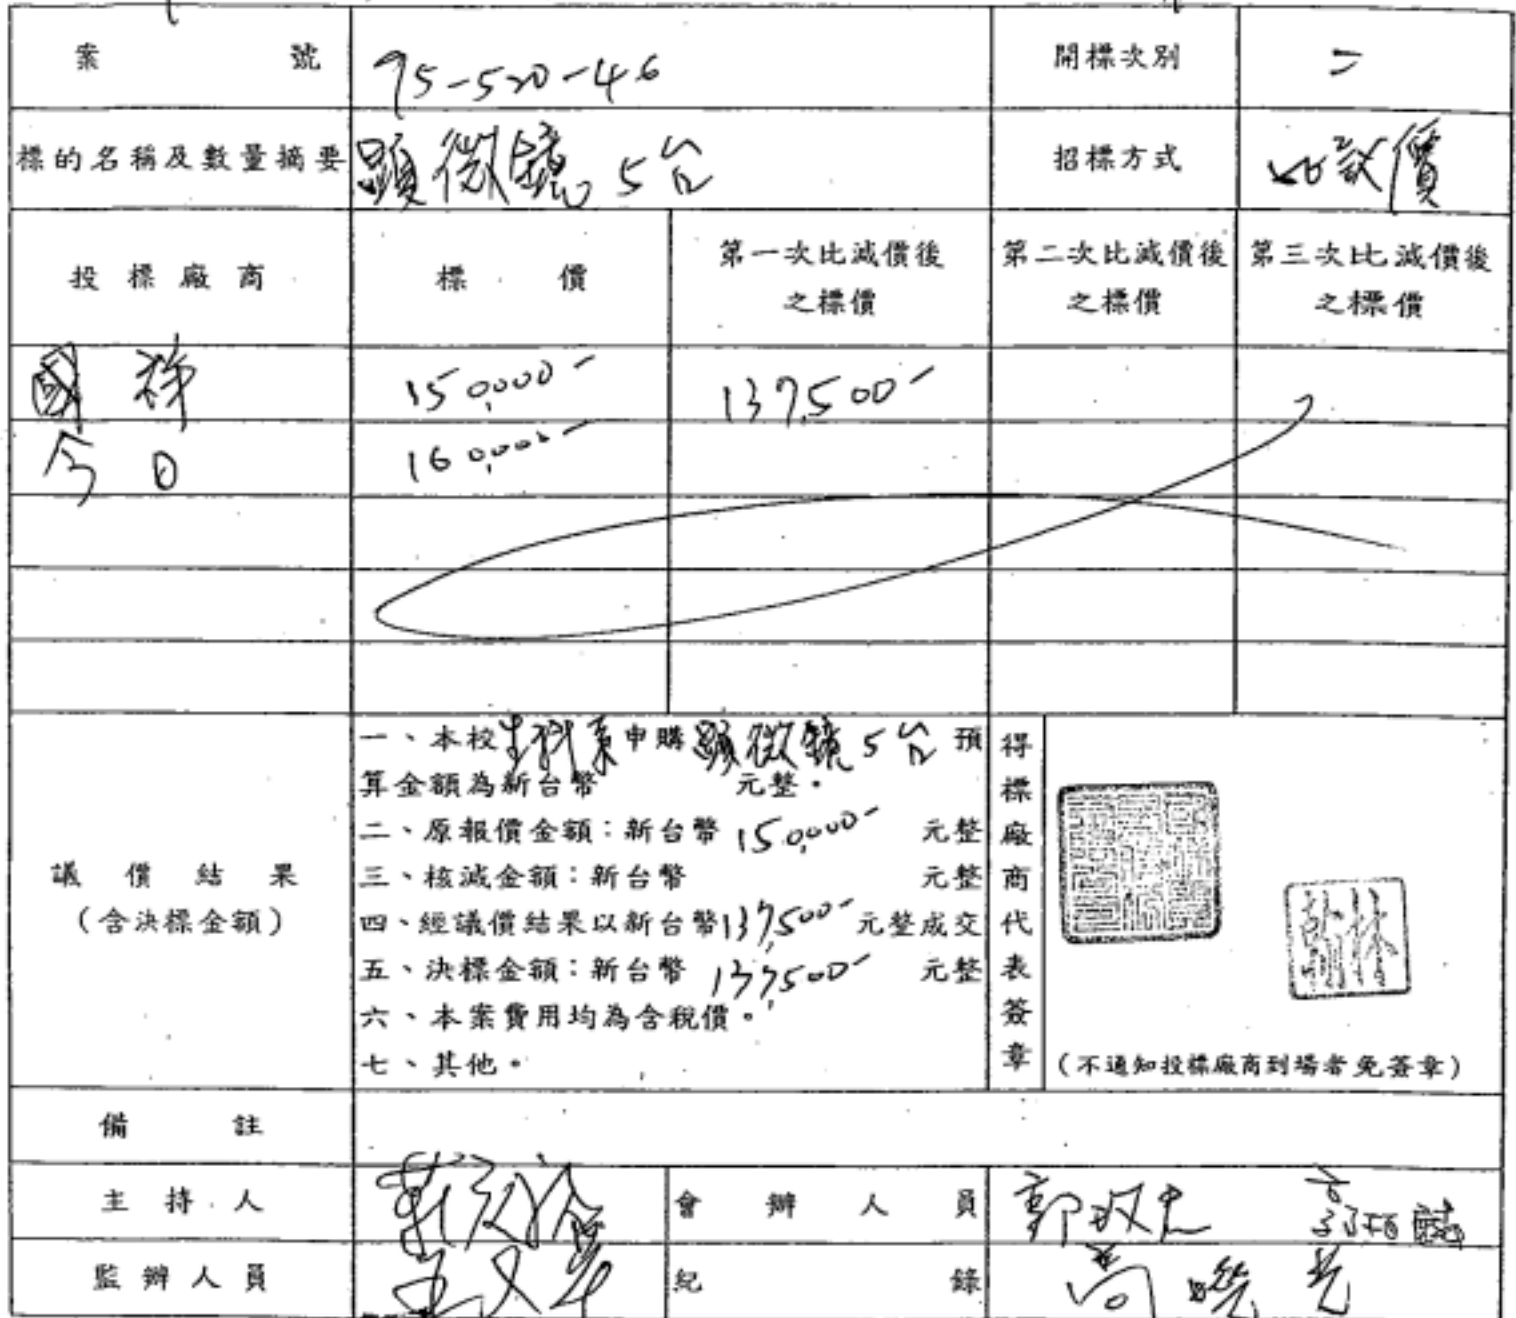 案號 95-520-46 開標次別 二
標的名稱及數量摘要 顯微鏡 5台 招標方式 議價
投標廠商 標價 第一次比減價後之標價 第二次比減價後之標價 第三次比減價後之標價
國祥 150,000- 137,500-
今日 160,000-
一、本校生科系申購顯微鏡5台預
算金額為新台幣 元整。
二、原報價金額：新台幣 150,000- 元整
三、核減金額：新台幣 元整
議價結果
(含決標金額)
四、經議價結果以新台幣137,500-元整成交
五、決標金額：新台幣 137,500- 元整
六、本案費用均為含稅價。
七、其他。
得標廠商代表簽章
(不通知投標廠商到場者免簽章)
備註
主持人 會辦人員
監辦人員 紀錄